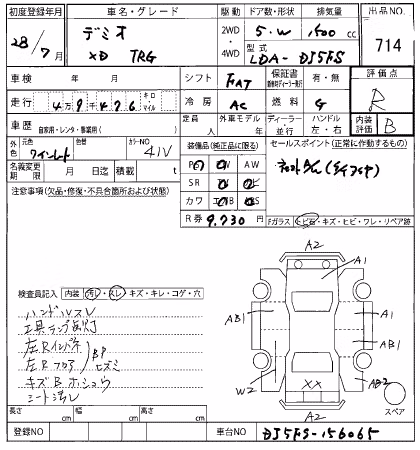 初度登録年月 車名・グレード 駆動 ドア数・形状 排気量 出品NO.
28/7月 デミオ XD TRG 2WD・4WD 5.W 1500 cc 714
型式 LDA-DJ5FS
車検 年 月 シフト FAT 保証書 有・無 評価点 R
走行 4万9千476 キロ マイル 冷房 AC 燃料 G
車歴 自家用・レンタ・事業用( ) 定員 人 外車モデル 年 ディーラー・並行 ハンドル 左・右 内装評価 B
外色 元色 ワインレッド 色替 カラーNO 41V 装備品(純正品に限る) セールスポイント(正常に作動するもの)
名義変更期限 月 日迄 積載 t PS PW AW
SR
カワ エアB
注意事項(欠品・修復・不具合箇所および状態)
R券 9.730円 Fガラス ヒビ・キズ・ヒビ・ワレ・リペア跡
検査員記入 内装 汚レ・スレ・キズ・キレ・コゲ・穴
ハンドルスレ
工具ランプ点灯
左Rインパネ
左Rフロア BPヒズミ
キズBホシュウ
シート汚レ
A2
A1
AB1 A1
AB1
W2 XX AB2
A2
スペア
長さ cm 幅 cm 高さ cm
登録NO 車台NO DJ5FS-156065